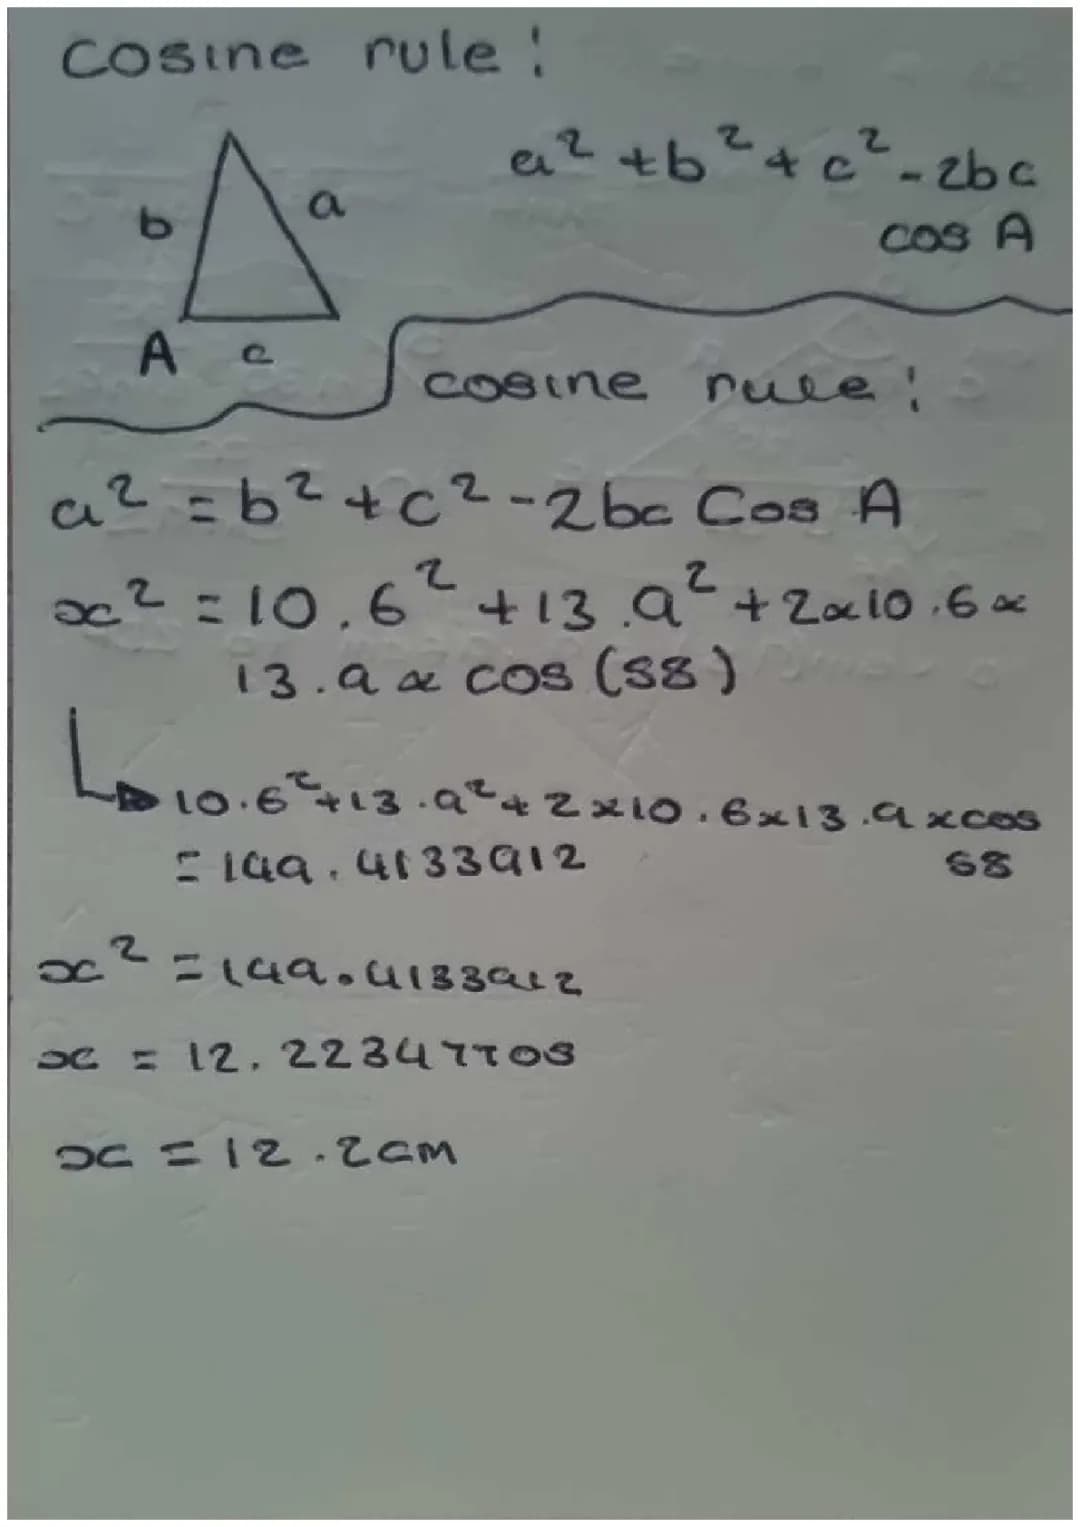 cosine rule:
a² + b² + c² - 2bc
cos A
b
a
A
c
cosine rule:
a² = b² + c² - 2bc Cos A
x² = 10.6² + 13.9² + 2x10.6x
13.9 x cos (58)
10.6² + 13.9² + 2x10.6x13.9xcos
58
= 149.4133912
x² = 149.4133912
x = 12.22347708
x = 12.2cm